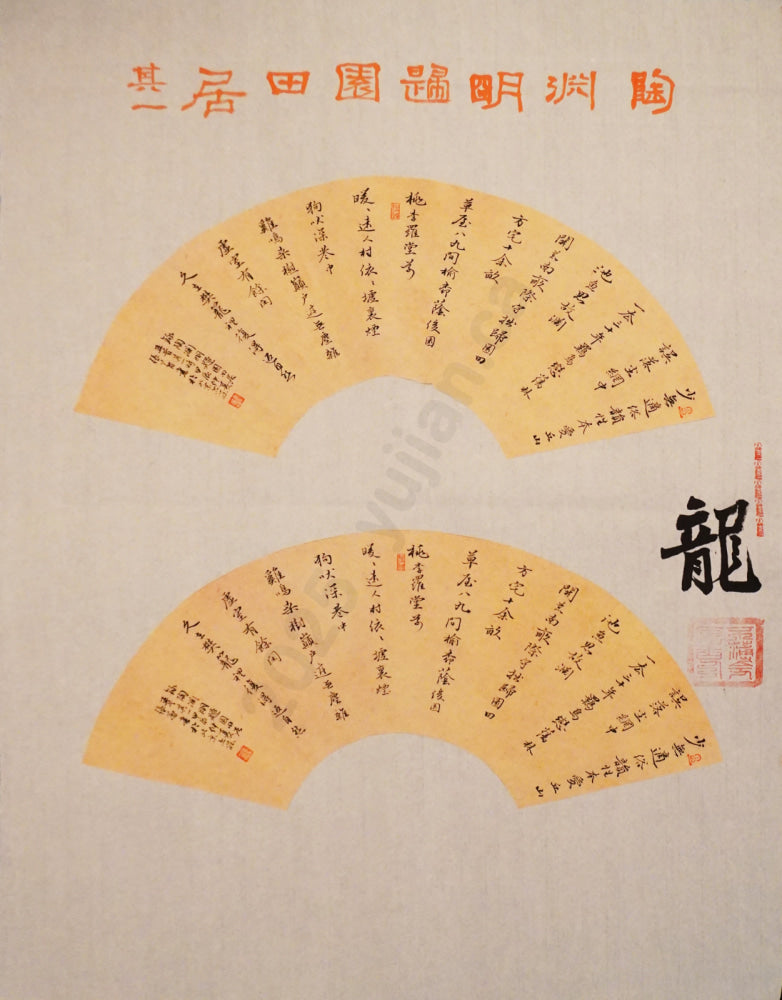 陶渊明歸園田居
其一
少無適俗韻性本愛丘山
誤落尘網中
一去三十年羈鳥戀舊林
池魚思故淵
開荒南野際守拙歸園田
方宅十余畝
草屋八九間榆柳蔭後园
桃李羅堂前
暧、遠人村依、墟裏煙
狗吠深巷中
雞鳴桑樹巔户庭無塵雜
虛室有餘閒
久在樊籠裡復得返自然
龍
少無適俗韻性本愛丘山
誤落尘網中
一去三十年羈鳥戀舊林
池魚思故淵
開荒南野際守拙歸園田
方宅十余畝
草屋八九間榆柳蔭後园
桃李羅堂前
暧、遠人村依、墟裏煙
狗吠深巷中
雞鳴桑樹巔户庭無塵雜
虛室有餘閒
久在樊籠裡復得返自然
2020 yujian.ca